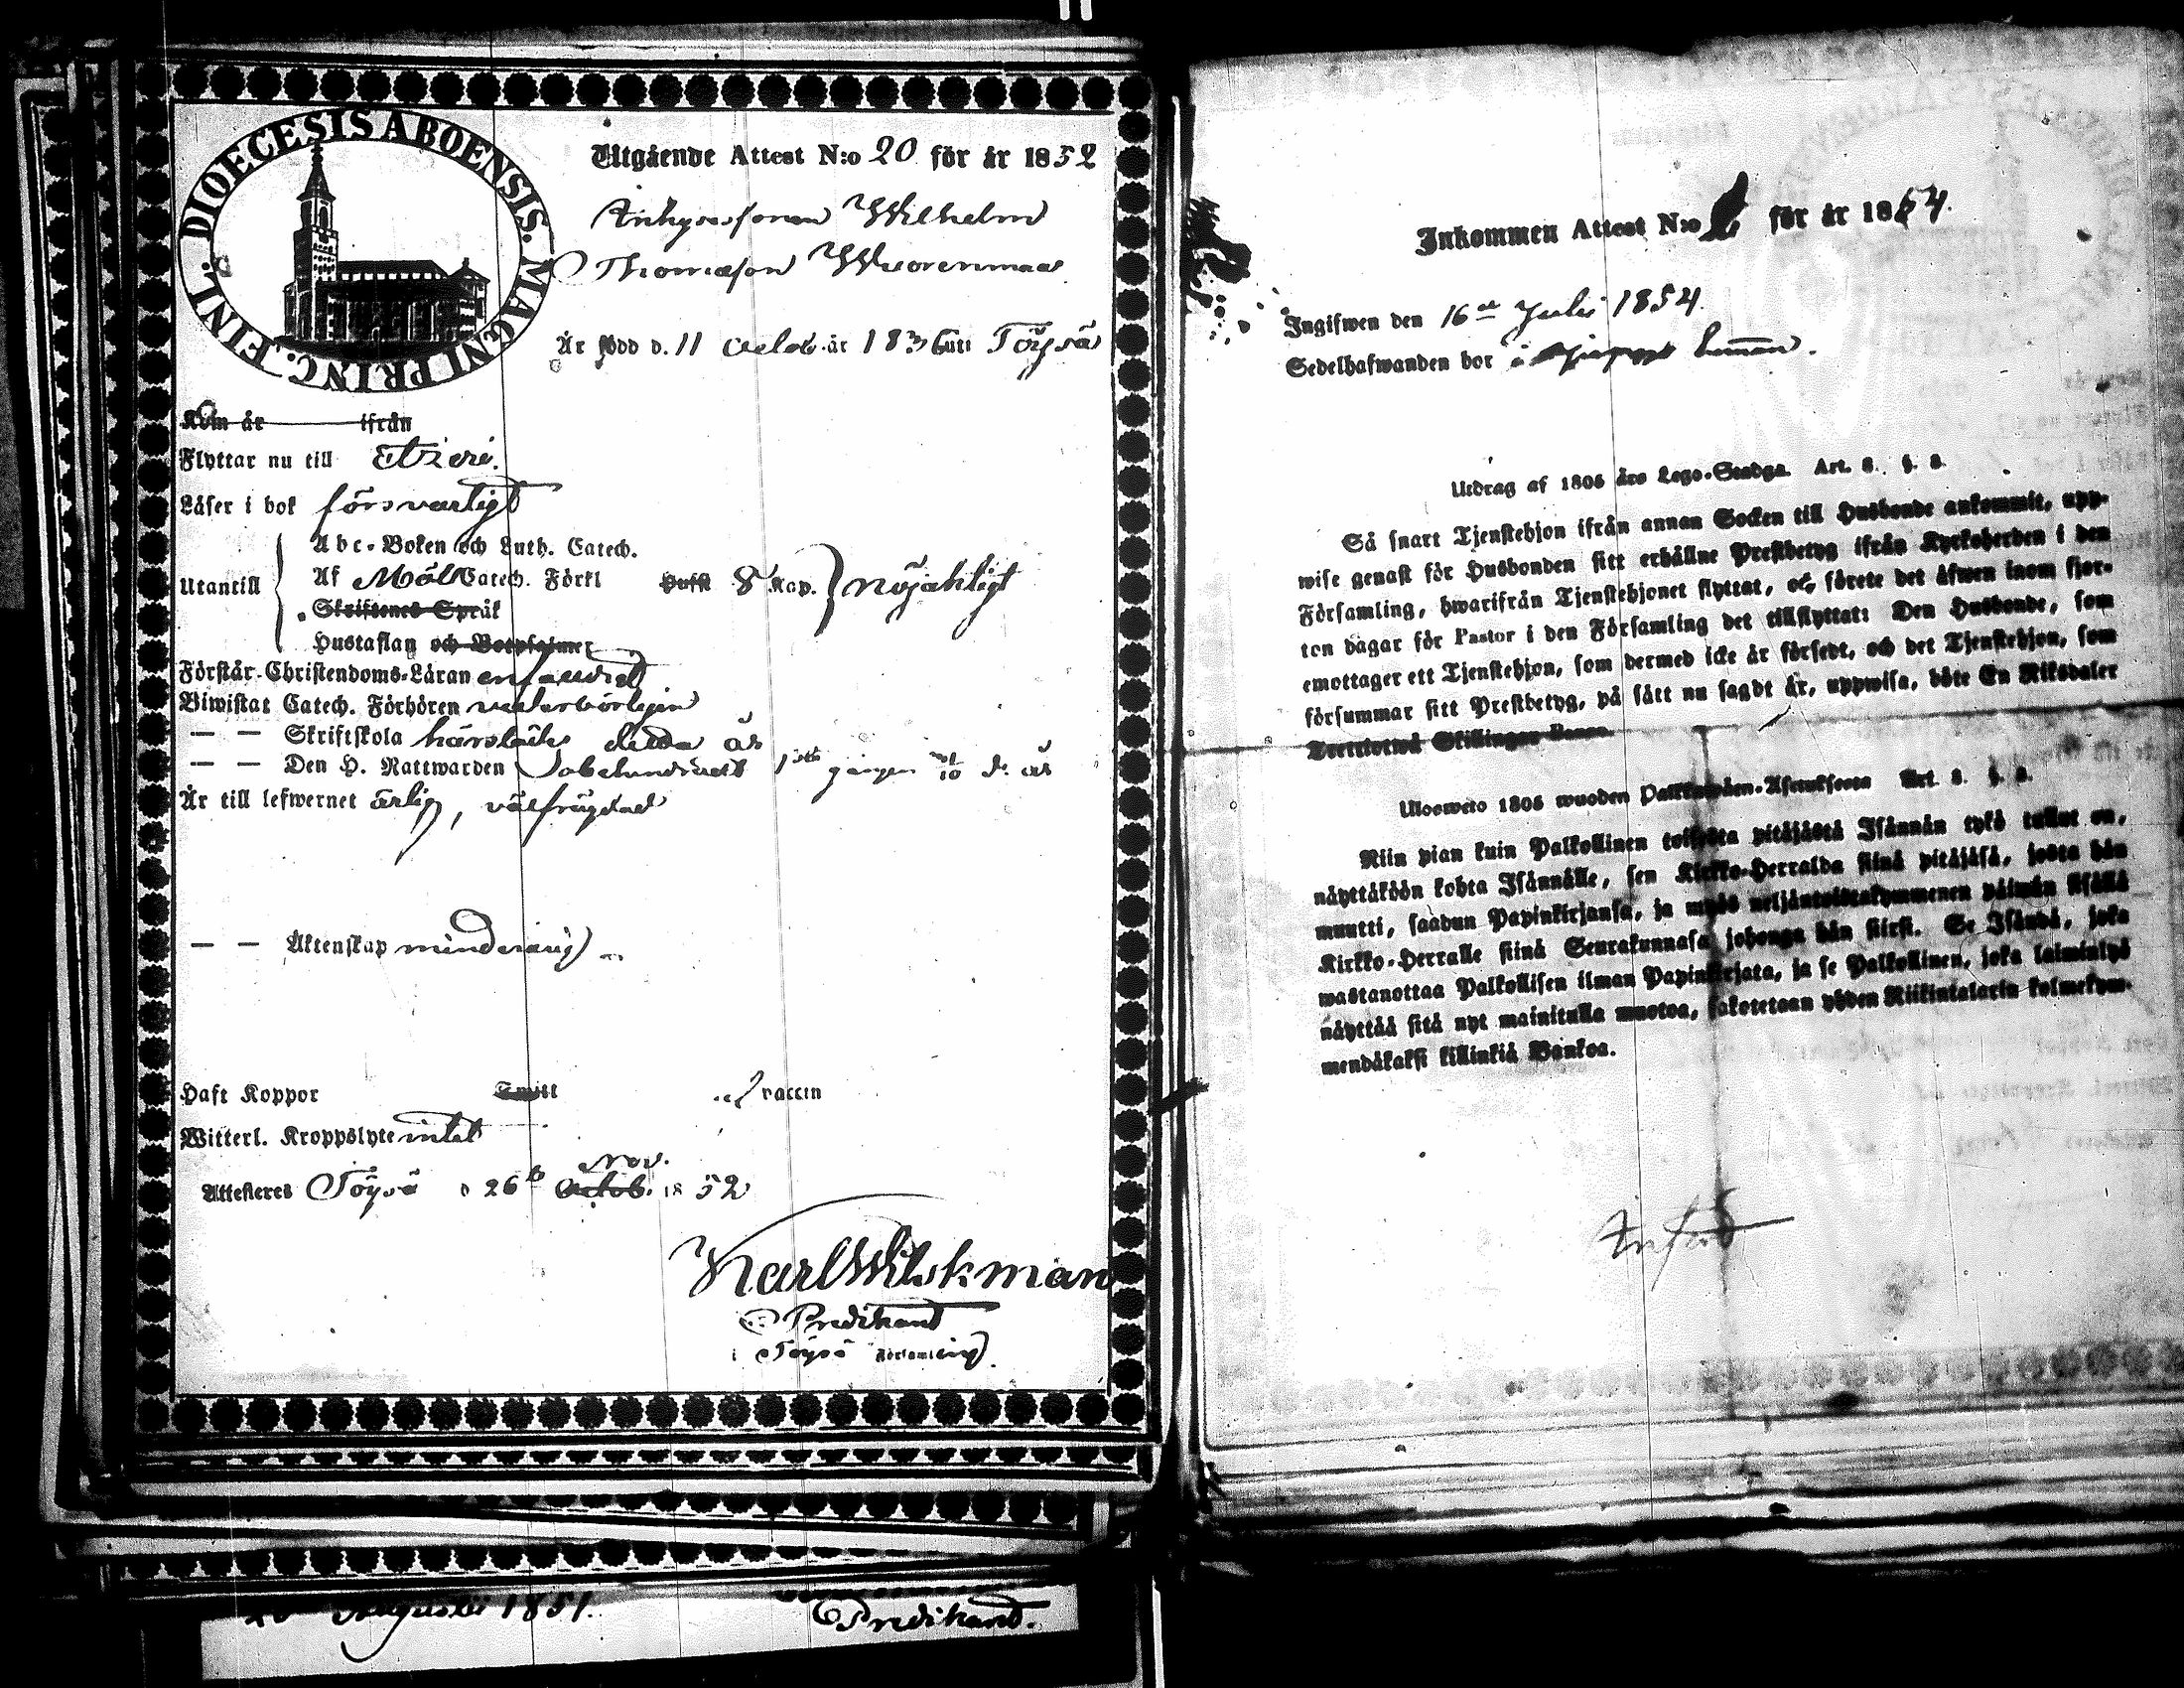 DIOECESIS ABOENSIS. MAGNI PRINC. FINL.
Utgående Attest N:o 20 för år 1852
Wilhelm
Thomasson Wuorenmaa
Är född d. 11 octob. år 1836 uti Töysä
Kom år ifrån
Flyttar nu till Etzeri.
Läser i bok försvarligt
Abc-Boken och Luth. Catech.
Utantill Af Möll Catech. Förkl Husfl 8 Kap. nöjaktigt
Skriftenes Språk
Hustaflan och Botpsalmer
Förstår Christendoms-Läran enfaldigt
Biwistat Catech. Förhören vederbörligen
— — Skriftskola härstädes detta år
— — Den H. Nattwarden gången 10 d. år
Är till lefwernet ärlig, välfrägdad
— — Äktenskap minderårig
Haft Koppor Twitt vaccin
Witterl. Kroppslyte intet
Nov.
Attesteres Töysä d 26 octob. 1852
Karl Wilskman
Predikant
i Töysä Församling
Augusti 1851.
Predikant.
Inkommen Attest N:o för år 1854.
Ingifwen den 16de Julii 1854.
Sedelhafwanden bor i
Utdrag af 1805 års Lego-Stadga. Art. 8. §. 8.
Så snart Tjenstehjon ifrån annan Socken till Husbonde ankommit, upp-
wise genast för Husbonden sitt erhållne Prestbetyg ifrån Kyrkoherden i den
Församling, hwarifrån Tjenstehjonet flyttat, och förete det äfwen inom fjor-
ton dagar för Pastor i den Församling det tillflyttat: Den Husbonde, som
emottager ett Tjenstehjon, som dermed icke är försedt, och det Tjenstehjon, som
försummar sitt Prestbetyg, på sätt nu sagdt är, uppwisa, böte En Riksdaler
Trettiotwå Skillingar Banco.
Ulosweto 1805 wuoden Palkkawäen-Asetuksesta Art. 8. §. 8.
Niin pian kuin Palkollinen toisesta pitäjästä Isännän tykö tullut on,
näyttäköön kohta Isännälle, sen Kirkko-Herralda siinä pitäjäsä, josta hän
muutti, saadun Papinkirjansa, ja myös neljäntoistakymmenen päiwän sisällä
Kirkko-Herralle siinä Seurakunnasa johonga hän siirsi. Se Isändä, joka
wastanottaa Palkollisen ilman Papinkirjata, ja se Palkollinen, joka laiminlyö
näyttää sitä nyt mainitulla muotoa, sakotetaan yhden Riikintalarin kolmekym-
mendäkaksi killinkiä Bankoa.
Införd